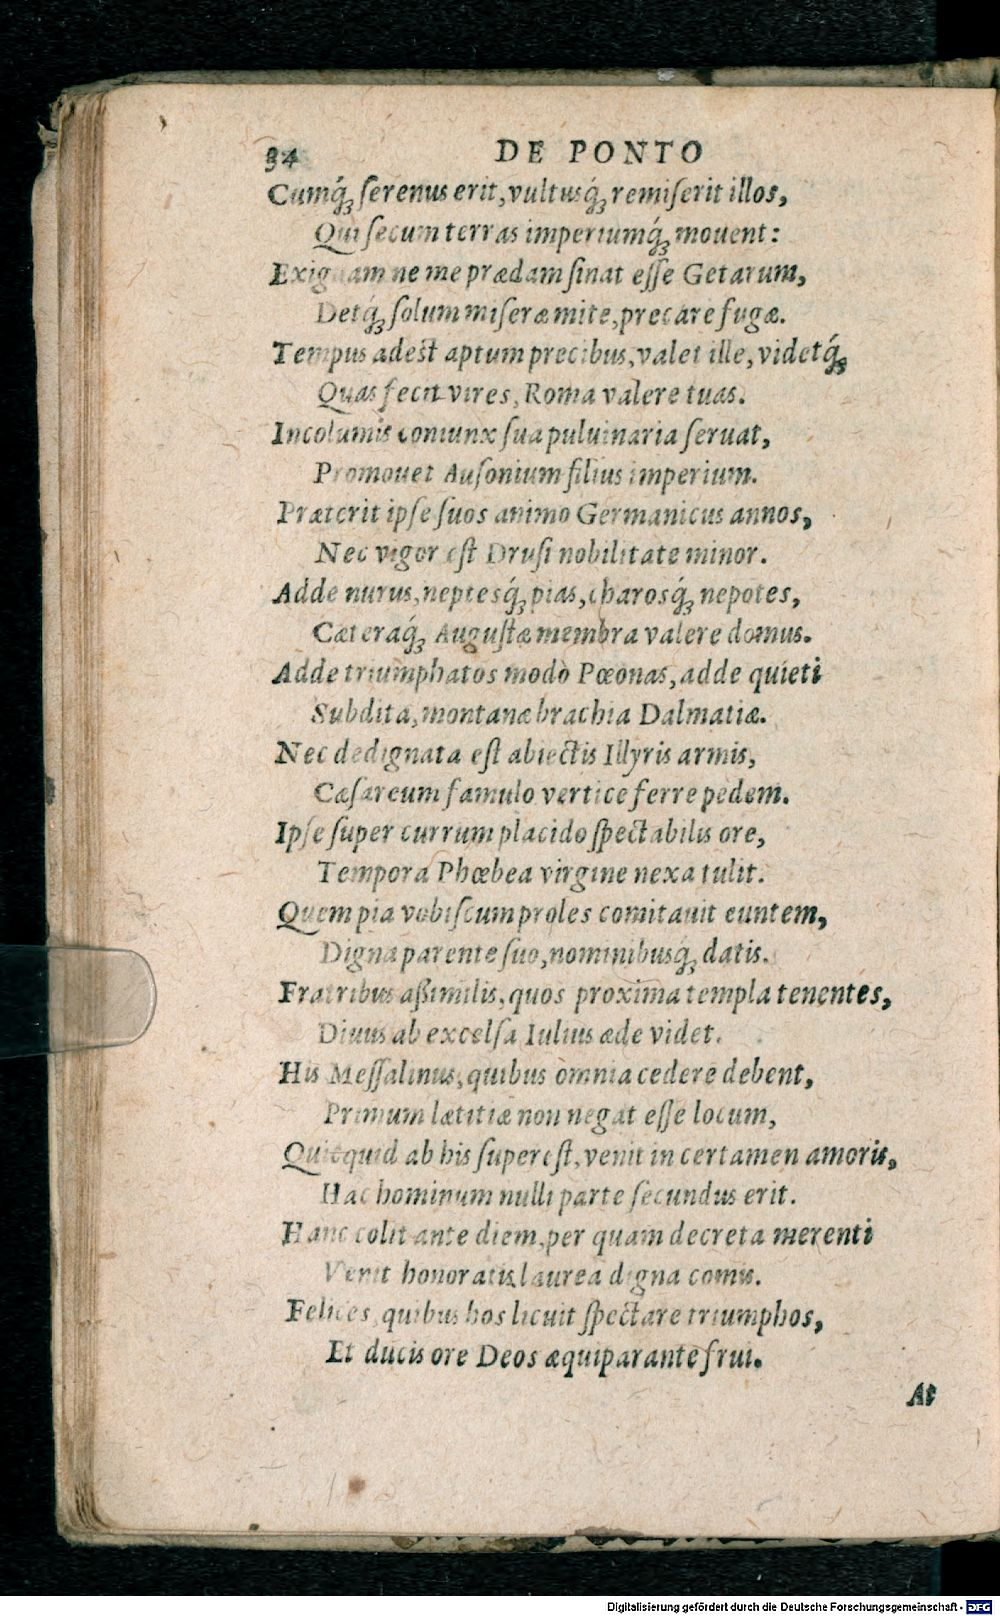 34 DE PONTO
Cumq́; ſerenus erit, vultusq́; remiſerit illos,
Qui ſecum terras imperiumq́; mouent:
Exiguam ne me prædam ſinat eſſe Getarum,
Detq́; ſolum miſeræ mite, precare fugæ.
Tempus adest aptum precibus, valet ille, videtq́;
Quas fecit vires, Roma valere tuas.
Incolumis coniunx ſua puluinaria ſeruat,
Promouet Auſonium filius imperium.
Præterit ipſe ſuos animo Germanicus annos,
Nec vigor eſt Druſi nobilitate minor.
Adde nurus, neptesq́; pias, charosq́; nepotes,
Cæteraq́; Auguſtæ membra valere domus.
Adde triumphatos modò Pœonas, adde quieti
Subdita, montanæ brachia Dalmatiæ.
Nec dedignata eſt abiectis Illyris armis,
Cæſareum famulo vertice ferre pedem.
Ipſe ſuper currum placido ſpectabilis ore,
Tempora Phœbea virgine nexa tulit.
Quem pia vobiſcum proles comitauit euntem,
Digna parente ſuo, nominibusq́; datis.
Fratribus aßimilis, quos proxima templa tenentes,
Diuus ab excelſa Iulius æde videt.
His Meſſalinus, quibus omnia cedere debent,
Primum lætitiæ non negat eſſe locum,
Quicquid ab his ſupereſt, venit in certamen amoris,
Hac hominum nulli parte ſecundus erit.
Hanc colit ante diem, per quam decreta merenti
Venit honoratis laurea digna comis.
Felices, quibus hos licuit ſpectare triumphos,
Et ducis ore Deos æquiparante frui.
At
Digitalisierung gefördert durch die Deutsche Forschungsgemeinschaft - DFG